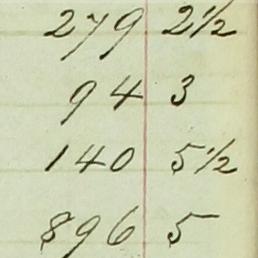 279 2½
94 3
140 5½
896 5